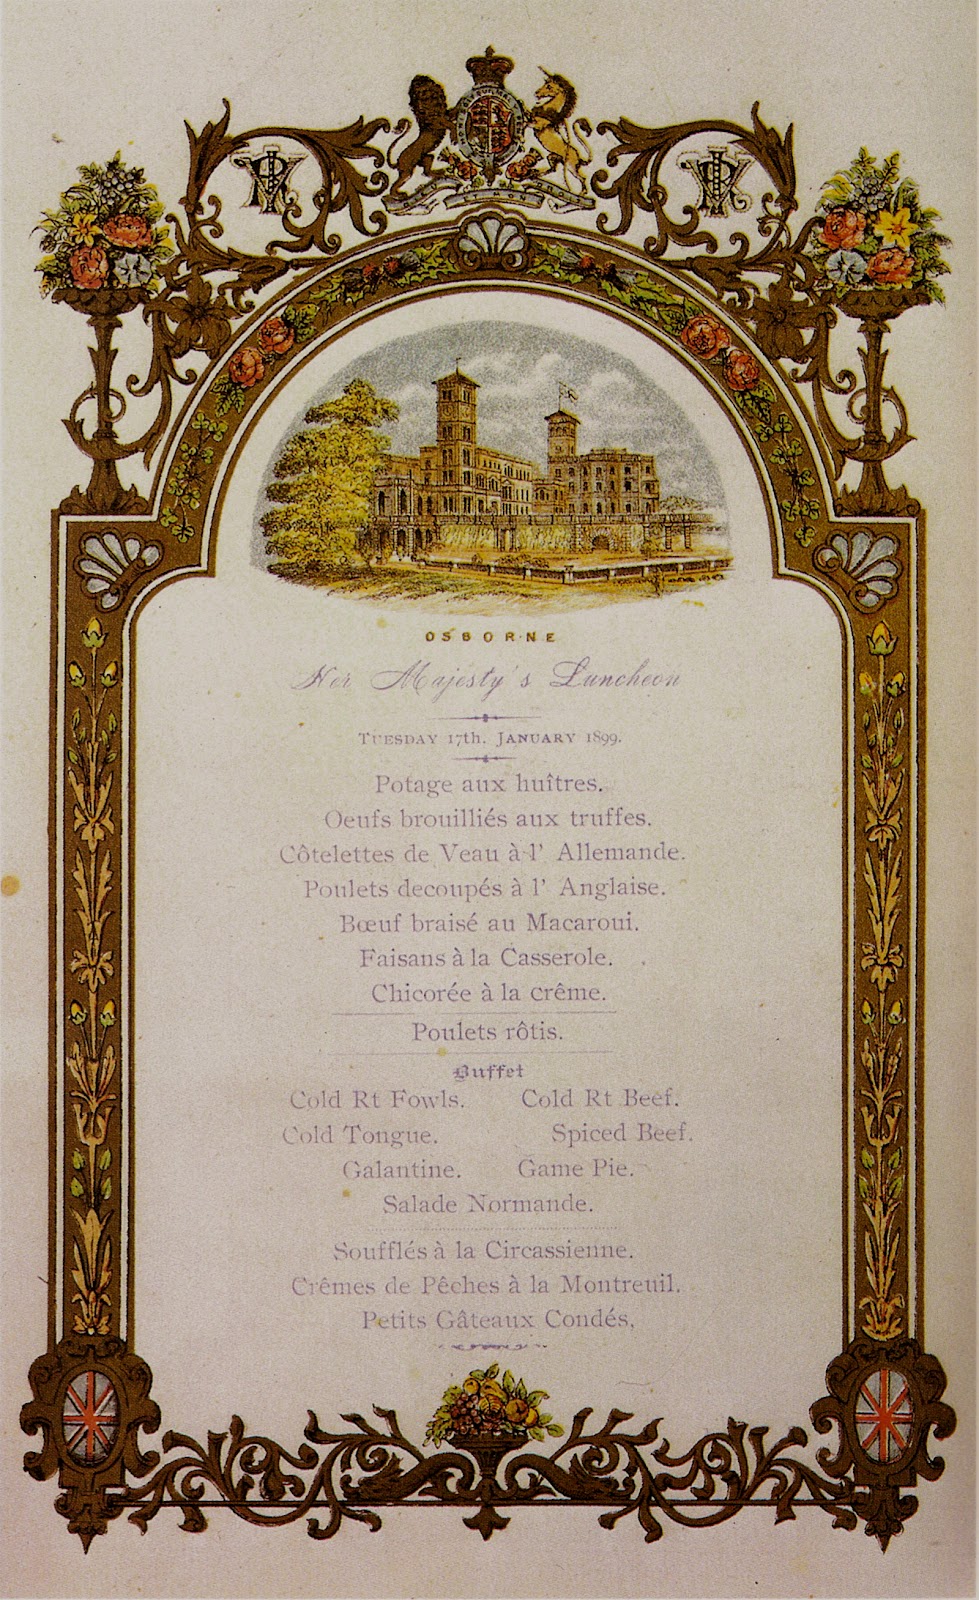 OSBORNE
Her Majesty's Luncheon
TUESDAY 17th. JANUARY 1899.
Potage aux huîtres.
Oeufs brouilliés aux truffes.
Côtelettes de Veau à l' Allemande.
Poulets decoupés à l' Anglaise.
Bœuf braisé au Macaroui.
Faisans à la Casserole.
Chicorée à la crême.
Poulets rôtis.
Buffet
Cold Rt Fowls. Cold Rt Beef.
Cold Tongue. Spiced Beef.
Galantine. Game Pie.
Salade Normande.
Soufflés à la Circassienne.
Crêmes de Pêches à la Montreuil.
Petits Gâteaux Condés,